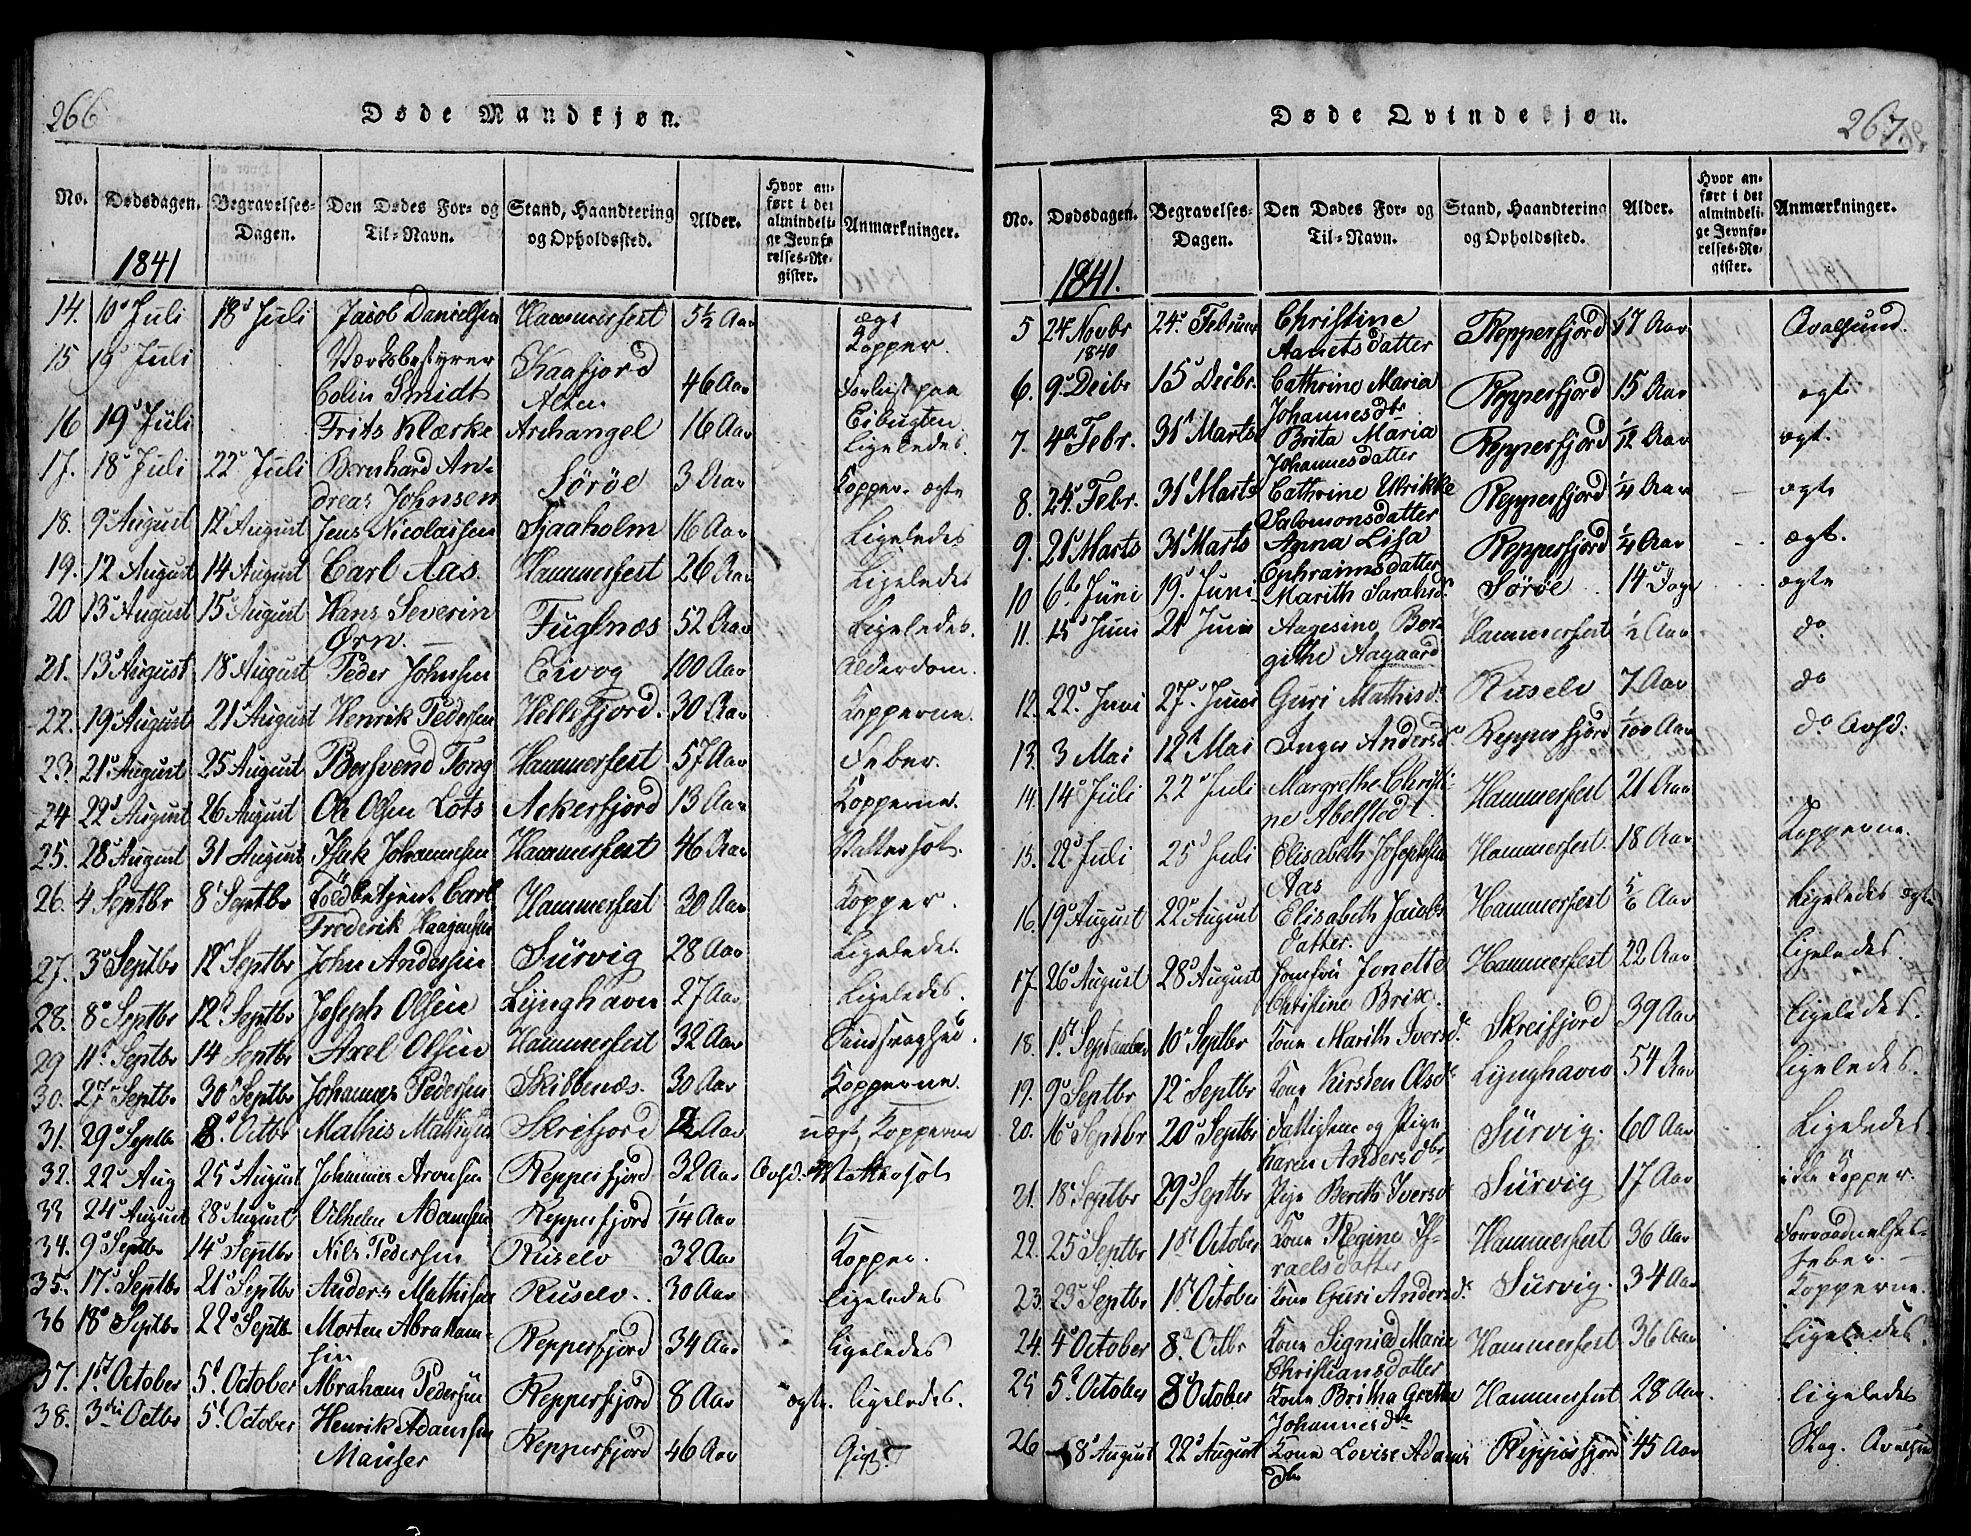 266
Døde Mandkjøn.
No. Dødsdagen. Begravelses-Dagen. Den Dødes For- og Til-Navn. Stand, Haandtering og Opholdssted. Alder. Hvor anført i det almindelige Jevnførelses-Register. Anmærkninger.
1841
14. 10d Juli 18d Juli Jacob Danielsen Hammerfest 5½ Aar ægt Kopper.
15 19d Juli Værksbestyrer Colin Smidt Kaafjord Alten 46 Aar
16 19d Juli Frits Klærke Archangel 16 Aar Ligeledes.
17. 18d Juli 22d Juli Bernhard Andreas Johnsen Sørøe 3 Aar Kopper. ægte
18. 9d August 12d August Jens Nicolaisen Sjaaholm 16 Aar Ligeledes
19. 12 August 14 August Carl Aas. Hammerfest 26 Aar Ligeledes
20 13d August 15d August Hans Severin Ørn. Fuglnæs 52 Aar Ligeledes.
21. 13d August 18d August Peder Johnsen Eivog 100 Aar Alderdom.
22. 19d August 21d August Henrik Pedersen Hellefjord. 30 Aar Kopperne.
23. 21d August 25 August Bersvend Tong Hammerfest 57 Aar Feber.
24 22d August 26 August Ole Olsen Lots Ackerfjord 13 Aar Kopperne.
25. 28d August 31 August Isak Johannesen Hammerfest 46 Aar Vattersot.
26. 4 Septbr 8d Septbr Toldbetjent Carl Frederik Haagensen Hammerfest 30 Aar Kopper.
27. 3d Septbr 12d Septbr John Andersen Survig 28 Aar Ligeledes
28. 8d Septbr 12d Septbr Joseph Olsen Lynghavn 27 Aar Ligeledes.
29 11d Septbr 14 Septbr Axel Olsen Hammerfest 32 Aar Sindsvaghed.
30. 27d Septbr 30d Septbr Johannes Pedersen Skibbenæs. 30 Aar Kopperne.
31. 29d Septbr 8d Octbr Mathis Mathisen Skreifjord Aar Kopperne
32. 22d Aug 25d August Johannes Arvesen Repperfjord 32 Aar Avsd. Vattersot
33 24d August 28d August Vilhelm Adamsen Repperfjord 1/4 Aar
34. 9d Septbr 14d Septbr Nils Pedersen Ruselv 32 Aar Kopper.
35. 17d Septbr 21d Septbr Anders Mathisen Ruselv. 30 Aar Ligeledes
36 18d Septbr 22d Septbr Morten Abrahamsen Repperfjord 34 Aar Ligeledes
37. 1st October 5d October Abraham Pedersen Repperfjord 8 Aar ægte. Ligeledes.
38. 3die Octbr 5d October Henrik Adamsen Mauser Repperfjord 46 Aar Gigt.
267.
Døde Qvindekjøn.
No. Dødsdagen. Begravelses-Dagen. Den Dødes For- og Til-Navn. Stand, Haandtering og Opholdssted. Alder. Hvor anført i det almindelige Jevnførelses-Register. Anmærkninger.
1841.
5 24d Novbr 1840 24d Februar Christine Aametsdatter Repperfjord 17 Aar Qvalsund.
6. 9d Decbr 15d Decbr. Cathrine Maria Johannesdtr Repperfjord 15 Aar ægt
7. 4d Febr. 31d Marts Brita Maria Johannesdatter Repperfjord 1/12 Aar ægt.
8. 24d Febr. 31d Marts Cathrine Ulrikke Salomonsdatter Repperfjord 1/4 Aar ægte
9. 21d Marts 31d Marts Anna Lisa Ephraimsdatter Repperfjord 1/4 Aar ægt.
10 6te Juni 19d Juni Marith Sarahsdr Sørøe 14 Dage ægte
11. 15d Juni 21 Juni Aagesine Bergithe Aagaard Hammerfest ½ Aar do
12. 22d Juni 27d Juni Guri Mathisdr Ruselv 7 Aar do
13. 3 Mai 12d Mai Inger Andersdr Repperfjord 1/100 Aar do Avsd.
14. 14d Juli 22d Juli Margrethe Christine Abelstedt. Hammerfest 21 Aar Kopperne.
15. 22d Juli 25d Juli Elisabeth Josephsen Aas Hammerfest. 18 Aar
16. 19d August 22d August Elisabeth Jacobsdatter. Hammerfest 5/6 Aar Ligeledes ægte
17. 26d August 28d August Jomfru Jonette Christine Brix. Hammerfest 22 Aar Ligeledes.
18. 1st September 10d Septbr Kone Marith Iversdr Skreifjord 39 Aar Ligeledes.
19. 9d Septbr 12d Septbr Kone Kirsten Olsdr Lynghavn 54 Aar Ligeledes.
20. 16d Septbr 20d Septbr Fattiglem og Pige Karen Andersdtr Survig. 60 Aar Ligeledes.
21. 18d Septbr 29d Septbr Pige Bereth Iversdr Survig 17 Aar ikke Kopper.
22. 25d Septbr 1st October Kone Regine Israelsdatter Hammerfest 36 Aar Forraadnelsesfeber.
23. 23d Septbr 1st October Kone Guri Andersdr Survig. 34 Aar Kopperne.
24. 4d October 8d Octbr Kone Signed Marie Christiansdatter Hammerfest 36 Aar Ligeledes.
25 5d October 8d October Kone Britha Grethe Johannesdtr Hammerfest 28 Aar. Ligeledes
26 8d August 22d August Kone Lovise Adamsdtr Repperfjord 45 Aar Slag. Qvalsund